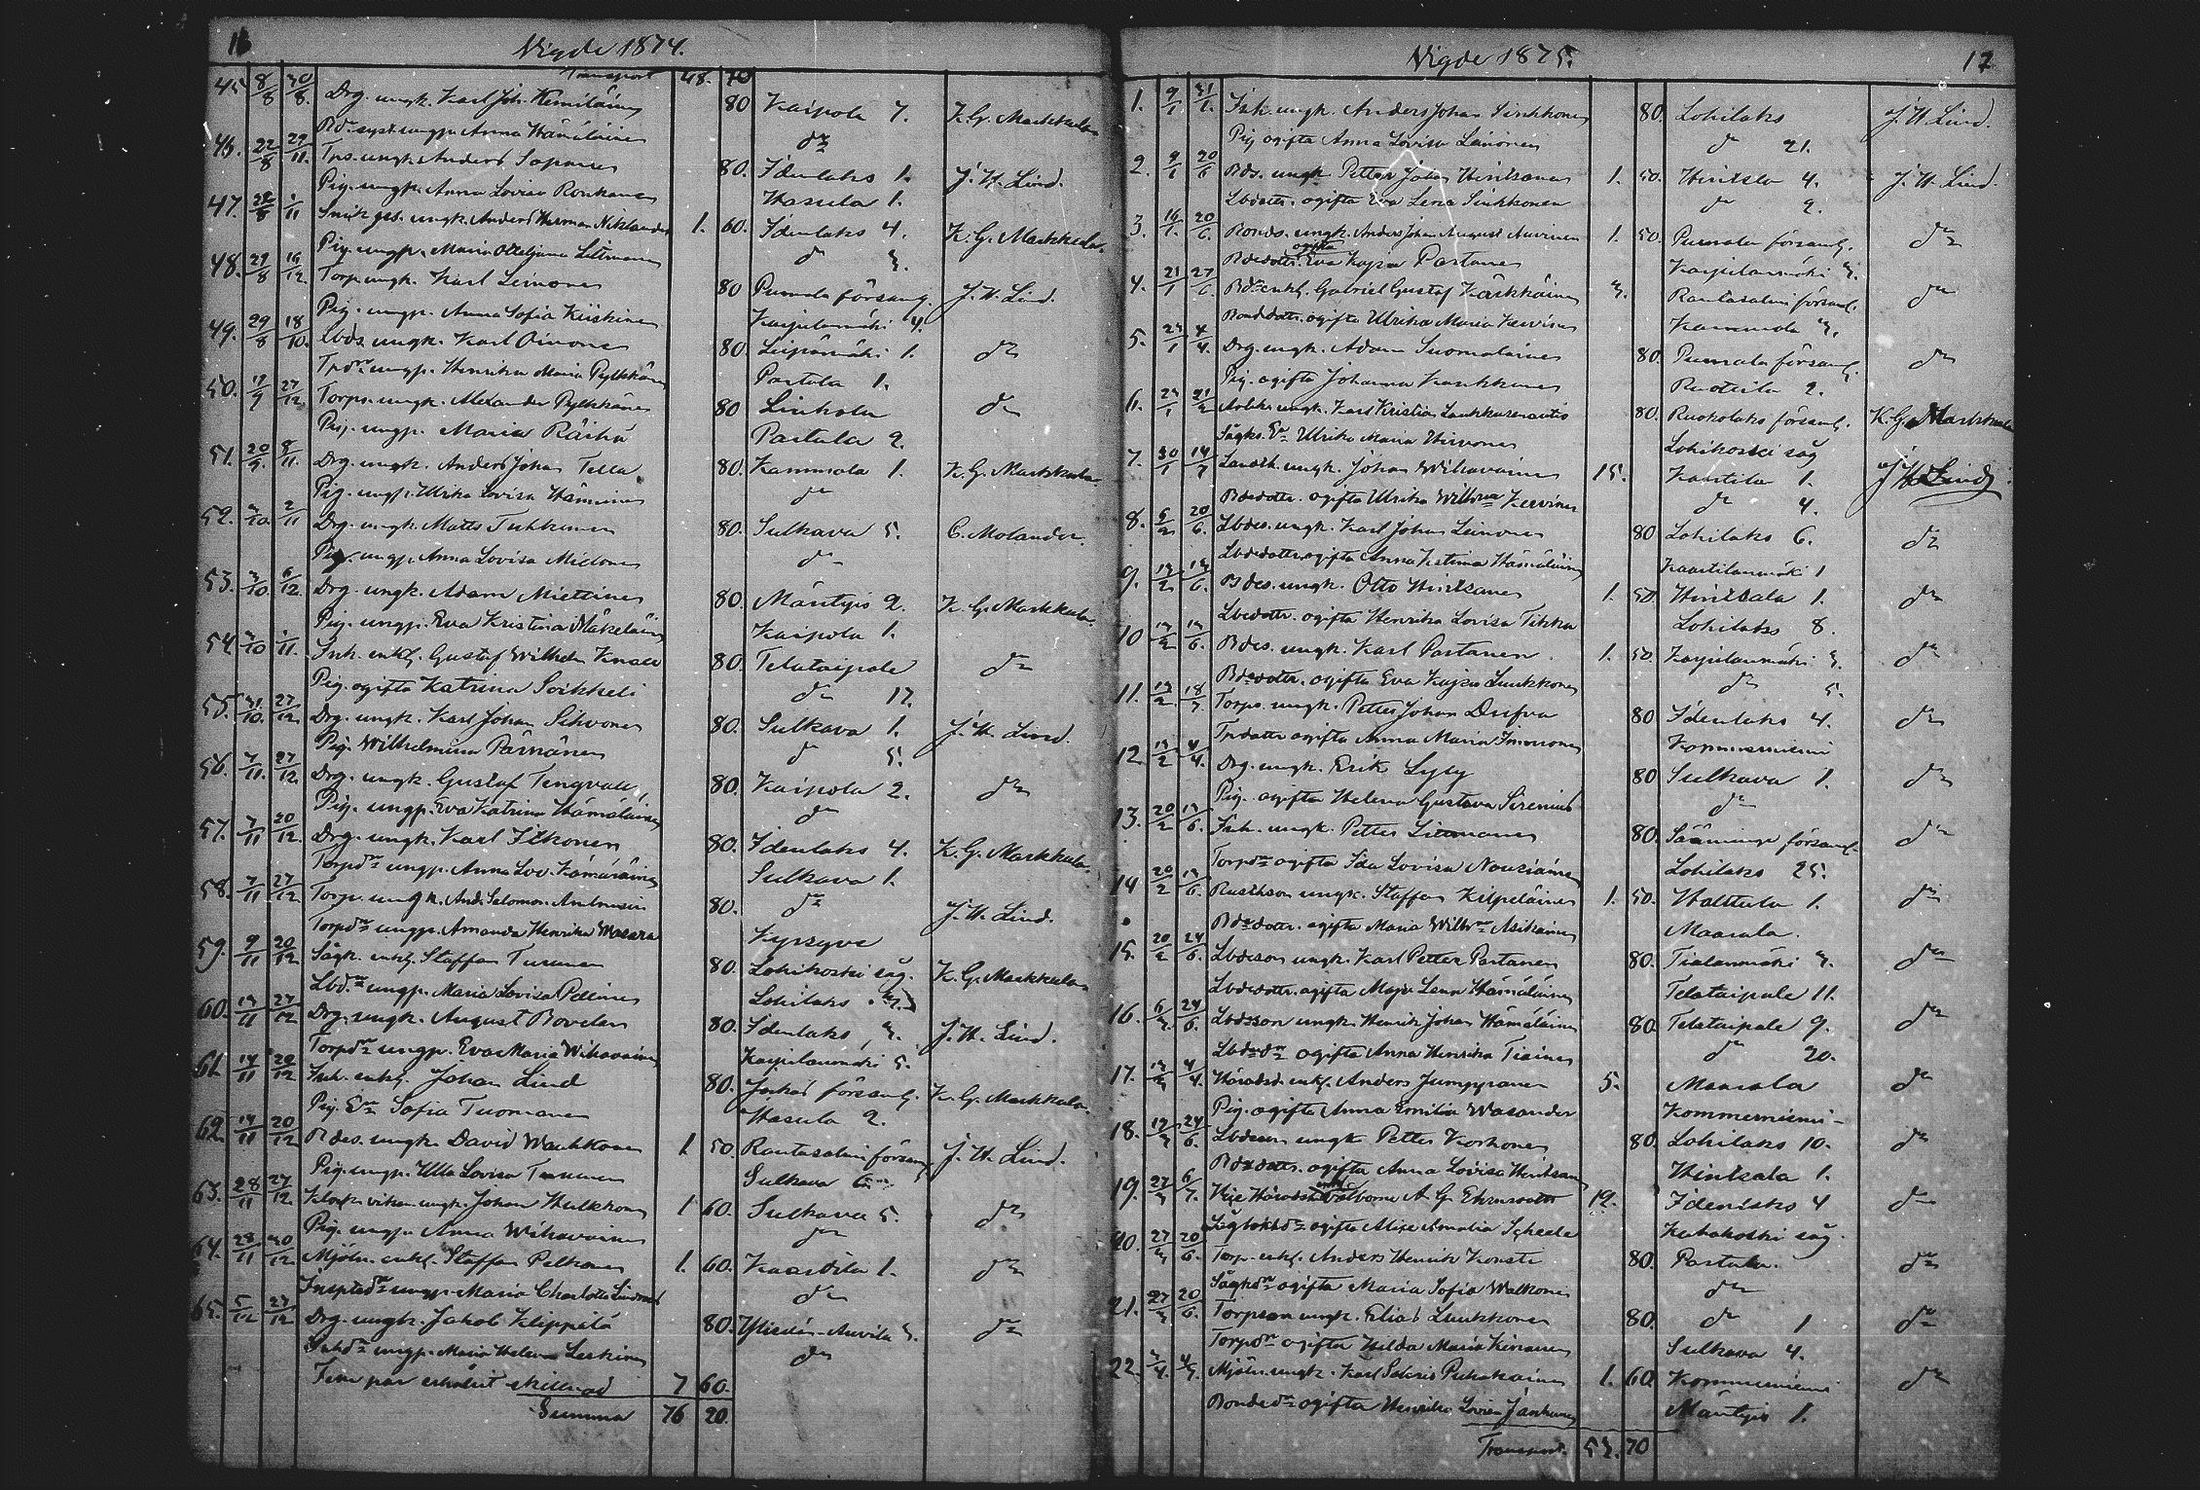 16
Vigde 1874.
Transport 48. 70
45 8/8 30/8. Drg. ungk. Karl Joh. Kemiläinen 80 Kaipola 7. K. G. Markkula
Bd. syst. ungp. Anna Hämäläinen do
46. 22/8 29/11. Tps. ungk. Anders Sopanen 80. Idenlaks 1. J. H. Lind.
Pig. ungp. Anna Lovisa Ronkanen Hasula 1.
47. 22/8 1/11 Snik. ges. ungk. Anders Herman Niklander 1. 60. Idenlaks 4. K. G. Markkula
Pig. ungp. Maria Ottiljana Litmanen d 3.
48. 29/8 19/12 Torp. ungk. Karl Leinonen 80 Pumala församl. J. H. Lind.
Pig. ungp. Anna Sofia Kiiskinen Karjulanmäki 4.
49. 29/8 18/10. Lbds ungk. Karl Oinonen 80. Leipämäki 1. do
Tpdr. ungp. Henrika Maria Pylkkänen Partala 1.
50. 17/9 27/12 Torps. ungk. Alexander Pylkkänen 80 Linkola do
Pig. ungp. Maria Räihä Partala 2.
51. 20/9. 8/11. Drg. ungk. Anders Johan Tella 80. Kammola 1. K. G. Markkula
Pig. ungp. Ulrika Lovisa Hänninen do
52. 3/10. 2/11 Drg. ungk. Matts Tukkinen 80. Sulkava 5. C. Molander.
Pig. ungp. Anna Lovisa do
53. 3/10 6/12. Drg. ungk. Adam Miettinen 80. Mäntyis 2. K. G. Markkula
Pig. ungp. Eva Kristina Mäkeläinen Kaipola 1.
54. 3/10 1/11. Inh. enkl. Gustaf Wilhelm 80. Telataipale do
Pig. ogifta Katrina Soikkeli do 12.
55. 31/10. 27/12 Drg. ungk. Karl Johan Sihvonen 80. Sulkava 1. J. H. Lind.
Pig. Wilhelmina Pärnänen d 5.
56. 7/11. 27/12 Drg. ungk. Gustaf Tengvall, 80. Kaipola 2. do
Pig. ungp. Eva Katrina Hämäläinen do
57. 7/11 20/12. Drg. ungk. Karl Itkonen 80. Idenlaks 4. K. G. Markkula.
Torpdr ungp. Anna Lov. Kämäräinen Sulkava 1.
58. 7/11 27/12 Torp. ungk. And. Salomon Ambrusin 80. do J. H. Lind.
Torpdr ungp. Amanda Henrika Wasara Kyrsyve
59. 9/11 20/12 Sågk. enkl. Staffan Turunen 80. Lohikoski såg. K. G. Markkula
Lbdr ungp. Maria Lovisa Pellinen Lohilaks
60. 14/11 27/12 Drg. ungk. August Bovelan 80. Idenlaks 3. J. H. Lind.
Torpdr ungp. Eva Maria Wihavainen Karjulanmäki 5.
61. 14/11 20/12 Inh. enkl. Johan Lind 80. församl. K. G. Markkula.
Pig. En Sofia Tuomainen Hasula 2.
62. 14/11 20/12 Bdes. ungk. David Wauhkonen 1 50. Rantasalmi församl. J. H. Lind.
Pig. ungp. Ulla Lovisa Turunen Sulkava
63. 28/11 27/12 ungk. Johan Hulkkonen 1 60. Sulkava 5. do
Pig. ungp. Anna Wihavainen do
64. 28/11 30/12 Mjöln. enkl. Staffan Pelkonen 1. 60. Kaartila 1. do
ungp. Maria Charlotta Lindroos do
65. 5/12 27/12 Drg. ungk. Jakob Klippilä 80. Auvila 3. do
Inhdr ungp. Maria Helena Leskinen do
Fem par erhållit 7 60.
Summa 76 20.
17
Vigde 1875.
1. 9/1 31/1. Inh. ungk. Anders Johan Sinkkonen 80. Lohilaks J. H. Lind.
Pig ogifta Anna Lovisa Leinonen d 21.
2. 9/1 20/6 Bds. ungk. Petter Johan Hintsanen 1. 50. Hintsla 4. J. H. Lind.
Lbdotter. ogifta Eva Lena Sinkkonen do 2.
3. 16/1. 20/6. Bonds. ungk. Anders Johan August Auvinen 1. 50. Pumala församl. do
Bdedotter. ogifta Eva Kajsa Partanen Karjulanmäki 3.
4. 21/1 27/6. Bde enkl. Gabriel Gustaf Kärkkäinen 3. Rantasalmi församl. do
Bonddottr. ogifta Ulrika Maria Kervinen Kammola 3.
5. 23/1 4/4. Drg. ungk. Adam Suomalainen 80. Pumala församl. do
Pig. ogifta Johanna Kankkunen Ruotsila 2.
6. 23/1 21/2 ungk. Karl Kristian 80. Ruokolaks församl. K. G. Markkula
Sågks. En Ulrika Maria Hirvonen Lohikoski såg
7. 30/1 14/7 ungk. Johan Wihavainen 15. Kaartila 1. J. H. Lind
Bdedotter. ogifta Ulrika Wilhma Kervinen do 4.
8. 6/2 20/6. Lbdes. ungk. Karl Johan Leinonen 80 Lohilaks 6. do
Lbdedotter ogifta Anna Kristina Hämäläinen Kaartilanmäki 1
9. 13/2 13/6. Bdes. ungk. Otto Hintsanen 1. 50. Hintsala 1. do
Lbdedotter. ogifta Henrika Lovisa Tikka Lohilaks 8.
10 13/2 13/6. Bdes. ungk. Karl Partanen 1. 50. Karjulanmäki 3. do
Bdedotter. ogifta Eva Kajsa Luukkonen do 5.
11. 13/2 18/7 Torps. ungk. Petter Johan Dufva 80 Idenlaks 4. do
Tpdotter ogifta Anna Maria Immonen Kommerniemi
12. 13/2 4/4. Drg. ungk. Erik Lyly 80 Sulkava 1. do
Pig. ogifta Helena Gustava Sirenius do
13. 20/2 13/6. Inh. ungk. Petter Litmanen 80. Sääminge församl. do
Torpdr ogifta Ida Lovisa Nousiainen Lohilaks 25.
14 20/2 13/6. Rusthson ungk. Staffan Kilpeläinen 1. 50. Halttula 1. do
Bdedotter. ogifta Maria Wilhma Asikainen Maarala.
15. 20/2 24/6. Lbdeson ungk. Karl Petter Partanen 80. Tiatanmäki 3. do
Lbdedotter. ogifta Maja Lena Hämäläinen Telataipale 11.
16. 6/3 24/6. Lbdeson ungk. Henrik Johan Hämäläinen 80. Telataipale 9. do
Lbdedr ogifta Anna Henrika Tiainen do 20.
17. 13/3 4/4. Häradsd. enkl. Anders Jumppanen 5. Maarala do
Pig. ogifta Anna Emilia Wasander Kommerniemi
18. 13/3 24/6. Lbdeson ungk. Petter Korhonen 80. Lohilaks 10. do
Bdedotter. ogifta Anna Lovisa Hintsanen Hintsala 1.
19. 27/3 6/7. Vice Häradsh. enkl. Välborne A. G. Ehrnrooth 12. Idenlaks 4 do
ogifta Alise Amalia Scheele Katakoski såg.
20. 27/3 20/6 Torp. enkl. Anders Henrik Konsti 80. Partala. do
Sågkdr ogifta Maria Sofia Walkonen do
21. 27/3 20/6. Torpson ungk. Elias Luukkonen 80. do 1 do
Torpdr ogifta Hilda Maria Kinnanen Sulkava 4.
22. 3/4. 4/7. Mjöln. ungk. Karl Puhakainen 1. 60. Kommerniemi do
Bondedr ogifta Henrika Lovisa Jänkänen Mäntyis 1.
Transport. 53. 70